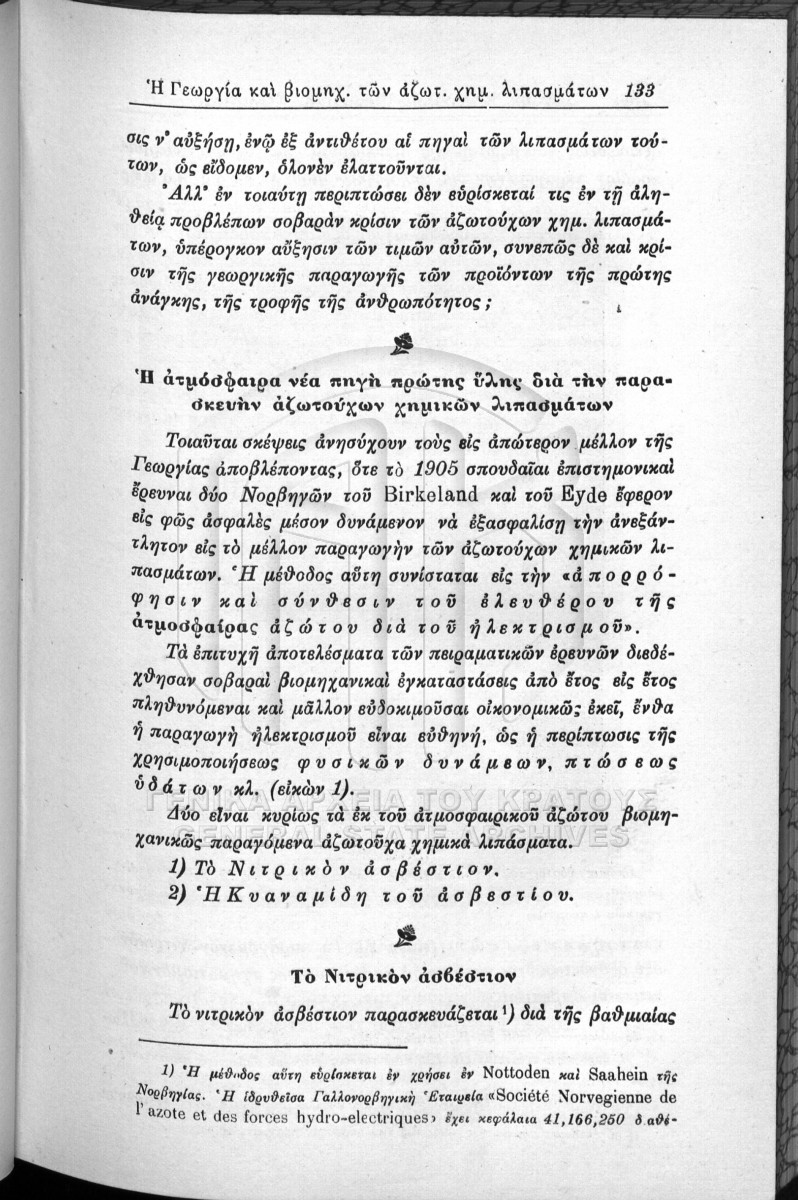 Ἡ Γεωργία καὶ βιομηχ. τῶν ἀζωτ. χημ. λιπασμάτων 133
σις ν' αὐξήσῃ, ἐνῷ ἐξ ἀντιθέτου αἱ πηγαὶ τῶν λιπασμάτων τού-
των, ὡς εἴδομεν, ὁλονὲν ἐλαττοῦνται.
Ἀλλ' ἐν τοιαύτῃ περιπτώσει δὲν εὑρίσκεταί τις ἐν τῇ ἀλη-
θείᾳ προβλέπων σοβαρὰν κρίσιν τῶν ἀζωτούχων χημ. λιπασμά-
των, ὑπέρογκον αὔξησιν τῶν τιμῶν αὐτῶν, συνεπῶς δὲ καὶ κρί-
σιν τῆς γεωργικῆς παραγωγῆς τῶν προϊόντων τῆς πρώτης
ἀνάγκης, τῆς τροφῆς τῆς ἀνθρωπότητος;
Ἡ ἀτμόσφαιρα νέα πηγὴ πρώτης ὕλης διὰ τὴν παρα-
σκευὴν ἀζωτούχων χημικῶν λιπασμάτων
Τοιαῦται σκέψεις ἀνησύχουν τοὺς εἰς ἀπώτερον μέλλον τῆς
Γεωργίας ἀποβλέποντας, ὅτε τὸ 1905 σπουδαῖαι ἐπιστημονικαὶ
ἔρευναι δύο Νορβηγῶν τοῦ Birkeland καὶ τοῦ Eyde ἔφερον
εἰς φῶς ἀσφαλὲς μέσον δυνάμενον νὰ ἐξασφαλίσῃ τὴν ἀνεξάν-
τλητον εἰς τὸ μέλλον παραγωγὴν τῶν ἀζωτούχων χημικῶν λι-
πασμάτων. Ἡ μέθοδος αὕτη συνίσταται εἰς τὴν «ἀπορρό-
φησιν καὶ σύνθεσιν τοῦ ἐλευθέρου τῆς
ἀτμοσφαίρας ἀζώτου διὰ τοῦ ἠλεκτρισμοῦ».
Τὰ ἐπιτυχῆ ἀποτελέσματα τῶν πειραματικῶν ἐρευνῶν διεδέ-
χθησαν σοβαραὶ βιομηχανικαὶ ἐγκαταστάσεις ἀπὸ ἔτος εἰς ἔτος
πληθυνόμεναι καὶ μᾶλλον εὐδοκιμοῦσαι οἰκονομικῶς ἐκεῖ, ἔνθα
ἡ παραγωγὴ ἠλεκτρισμοῦ εἶναι εὐθηνή, ὡς ἡ περίπτωσις τῆς
χρησιμοποιήσεως φυσικῶν δυνάμεων, πτώσεως
ὑδάτων κλ. (εἰκὼν 1).
ΓΕΝΙΚΑ ΑΡΧΕΙΑ ΤΟΥ ΚΡΑΤΟΥΣ
Δύο εἶναι κυρίως τὰ ἐκ τοῦ ἀτμοσφαιρικοῦ ἀζώτου βιομη-
GENERAL STATE ARCHIVES
χανικῶς παραγόμενα ἀζωτοῦχα χημικὰ λιπάσματα.
1) Τὸ Νιτρικὸν ἀσβέστιον.
2) Ἡ Κυαναμίδη τοῦ ἀσβεστίου.
Τὸ Νιτρικὸν ἀσβέστιον
Τὸ νιτρικὸν ἀσβέστιον παρασκευάζεται ¹) διὰ τῆς βαθμιαίας
1) Ἡ μέθοδος αὕτη εὑρίσκεται ἐν χρήσει ἐν Nottoden καὶ Saahein τῆς
Νορβηγίας. Ἡ ἱδρυθεῖσα Γαλλονορβηγικὴ Ἑταιρεία «Société Norvegienne de
l'azote et des forces hydro-electriques» ἔχει κεφάλαια 41,166,250 διαθέ-